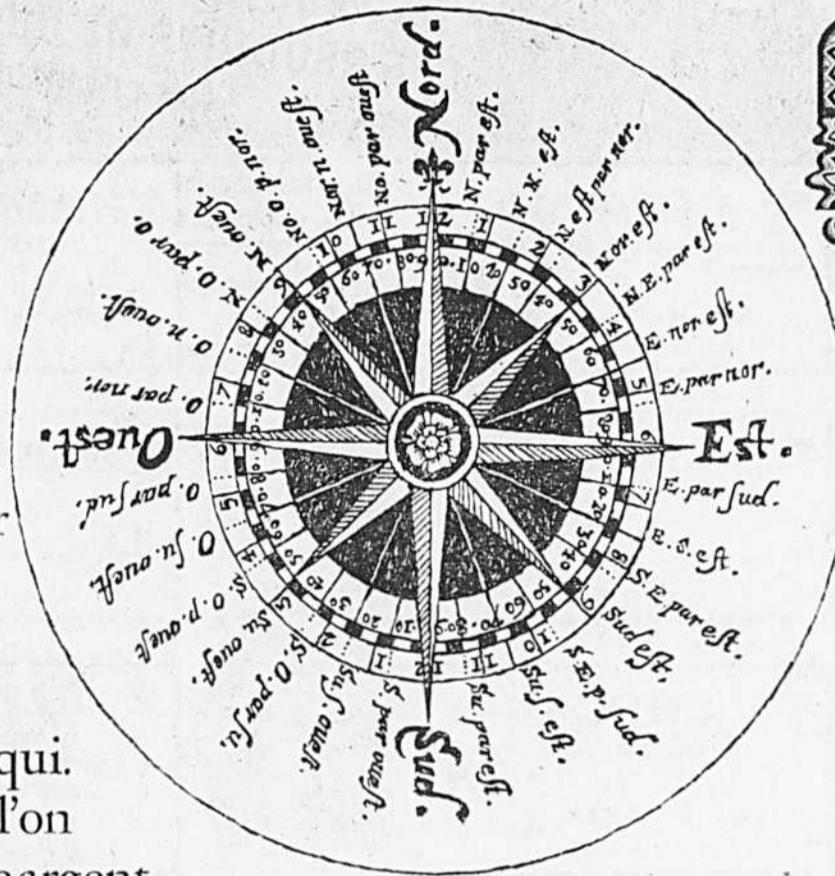 Nord.
N. par eſt.
N. N. eſt.
N. eſt par nor.
Nor. eſt.
N. E. par eſt.
E. nor eſt.
E. par nor.
Eſt.
E. par ſud.
E. S. eſt.
S. E. par eſt.
Sud eſt.
S. E. p. ſud.
Su. ſ. eſt.
Su. par eſt.
Sud.
S par oueſt.
Su ſ. oueſt.
S. O. par ſu.
Su. oueſt.
S. O. p. oueſt
O. ſu. oueſt.
O. par ſud.
Oueſt.
O. par nor.
O. n. oueſt.
N. O. par o.
N oueſt.
No. O. p. nor.
Nor n oueſt.
No. par oueſt
12
1
2
3
4
5
6
7
8
9
10
11
12
1
2
3
4
5
6
7
8
9
10
11
qui.
l'on